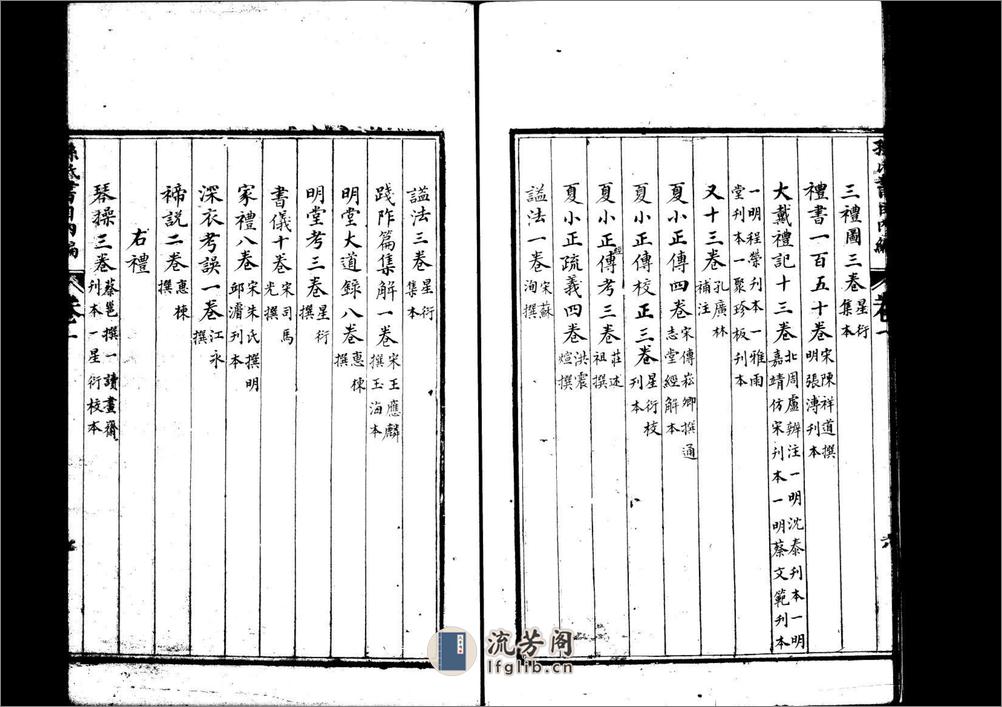 三禮圖三卷星衍集本
禮書一百五十卷宋陳祥道撰明張溥刊本
大戴禮記十三卷北周盧辨注一明沈泰刊本一明嘉靖仿宋刊本一明蔡文範刊本
一明程榮刊本一雅雨堂刊本一聚珍板刊本
又十三卷孔廣林補注
夏小正傳四卷宋傅崧卿撰通志堂經解本
夏小正傳校正三卷星衍校刊本
夏小正經傳考三卷莊述祖撰
夏小正疏義四卷洪震煊撰
謚法一卷宋蘇洵撰
孫氏書目內編
卷一
六
謚法三卷星衍集本
踐阼篇集解一卷宋王應麟撰玉海本
明堂大道錄八卷惠棟撰
明堂考三卷星衍撰
書儀十卷宋司馬光撰
家禮八卷宋朱氏撰明邱濬刊本
深衣考誤一卷江永撰
禘説二卷惠棟撰
右禮
琴操三卷蔡邕撰一讀畫齋刊本一星衍校本
孫氏書目內編
卷一
流芳阁
lfglib.cn